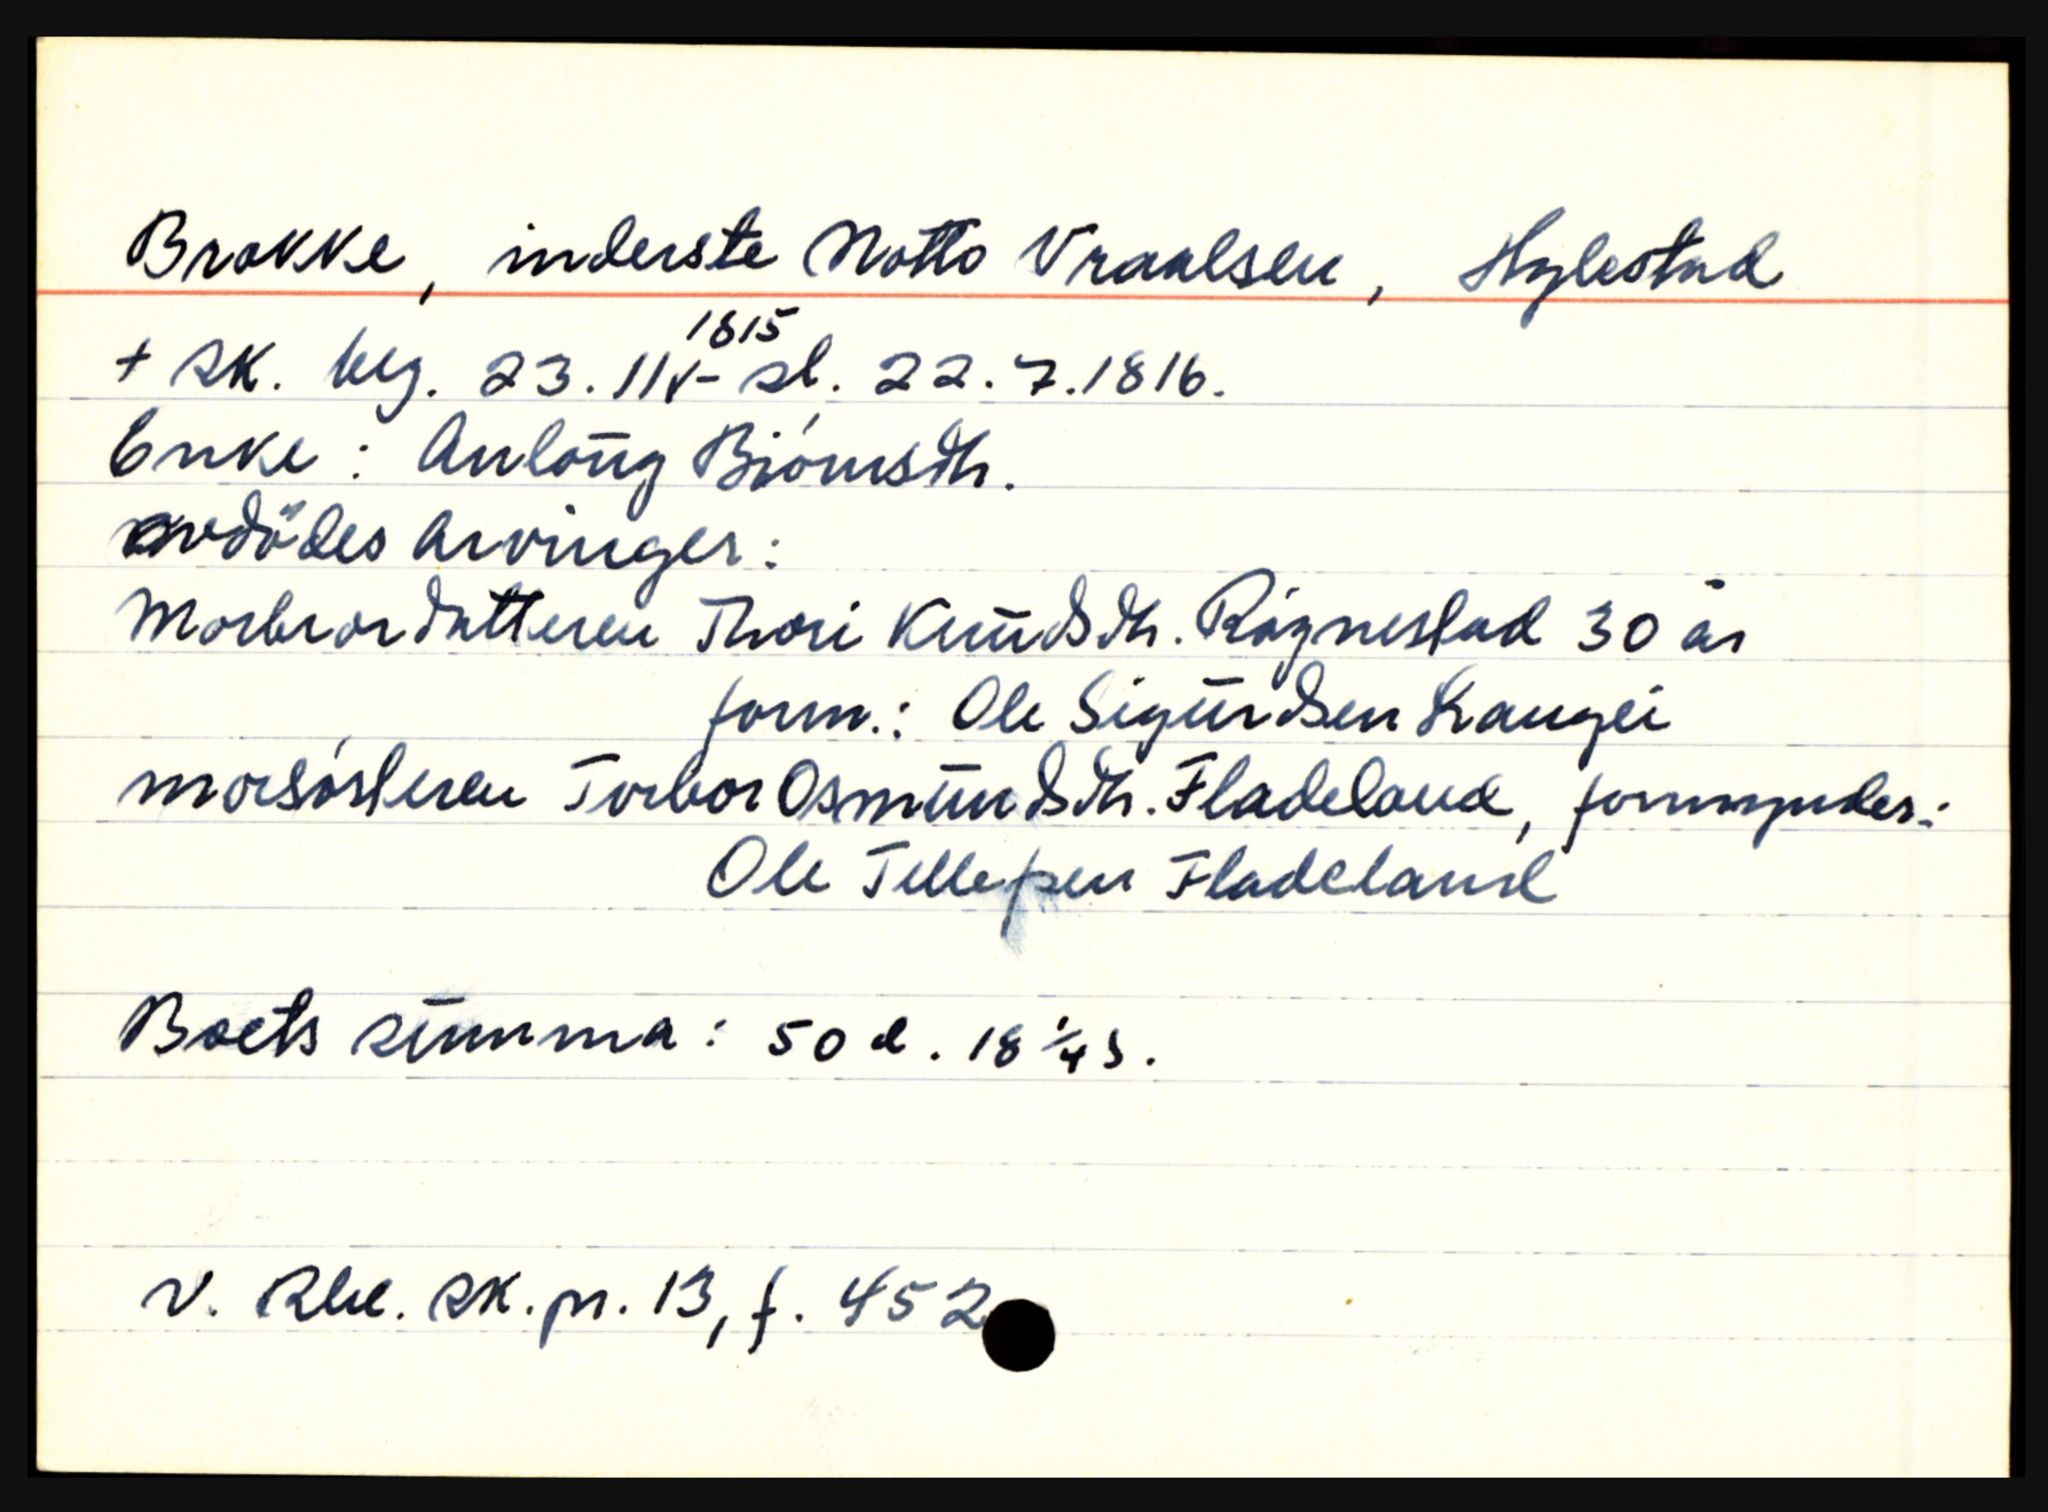 Brokke, inderste Notto Vraalsen, Hylestad
+ sk. beg. 23. 11 1815 - sl. 22.7.1816.
Enke: Anlaug Biörnsdtr.
avdödes arvinger:
Morbrordatteren Thori Knudsdtr. Rögnestad 30 år
form.: Ole Sigurdsen Langei
morsösteren Torbor Osmundsdtr. Fladeland, formynder:
Ole Tellefsen Fladeland
Boets summa: 50 d. 18 1/4 s.
V. Rbl. sk.pr. 13, f. 452